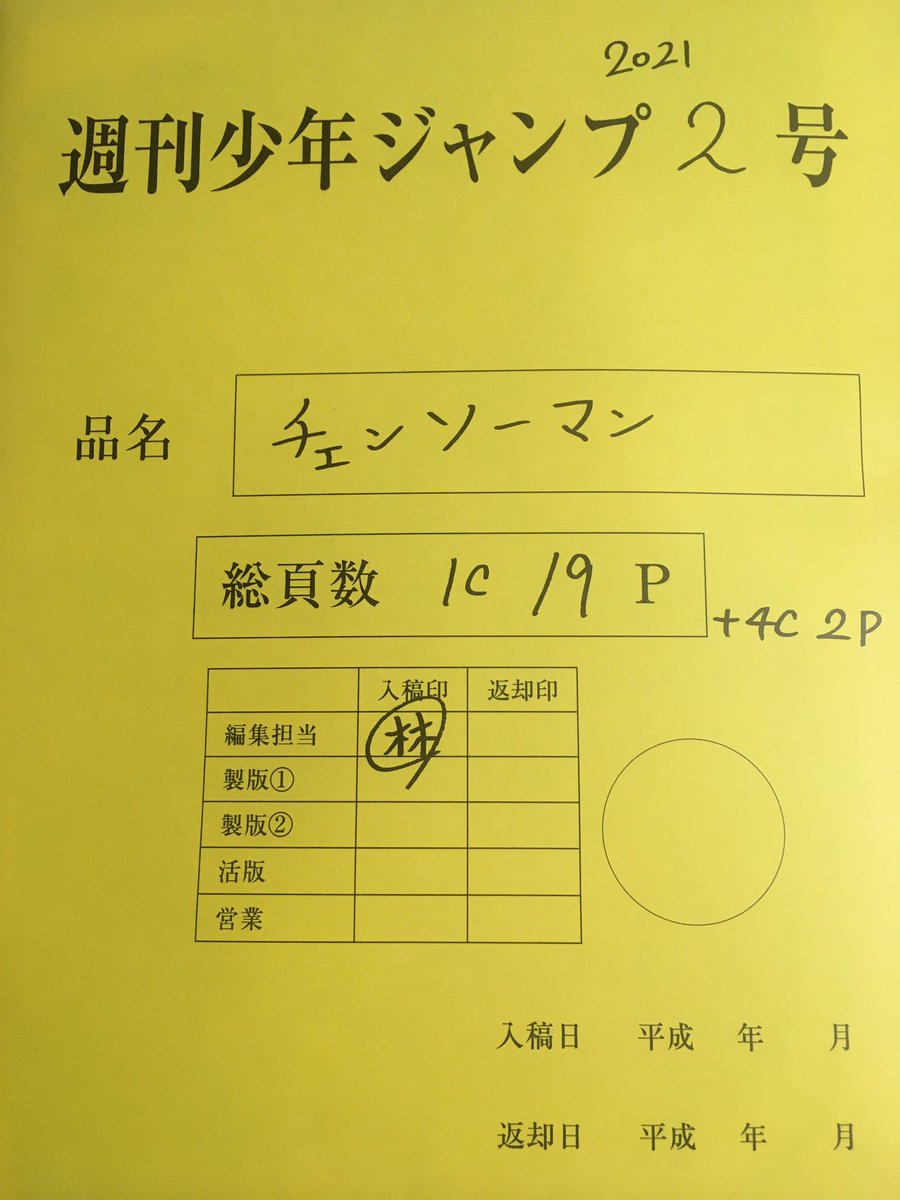 2021
週刊少年ジャンプ 2 号
品名 チェンソーマン
総頁数 1C 19 P
+4C 2P
入稿印 返却印
編集担当 林
製版①
製版②
活版
営業
入稿日 平成 年 月
返却日 平成 年 月